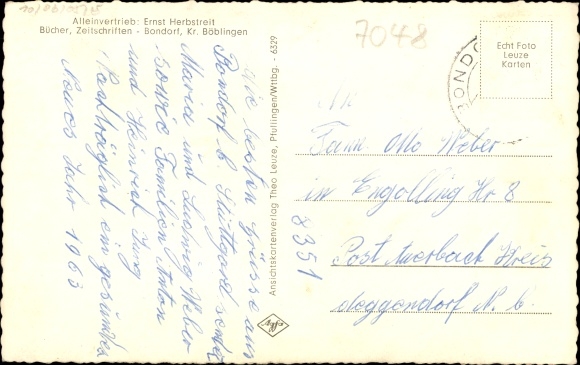 Alleinvertrieb: Ernst Herbstreit
Bücher, Zeitschriften - Bondorf, Kr. Böblingen
7048
Echt Foto
Leuze
Karten
Die besten Grüsse aus
Bondorf b. Stuttgart sendet
Maria und Ludwig Weber
sowie Familien Anton
und Heinrich Jung
Nachträglich ein gesundes
Neues Jahr 1963
Ansichtskartenverlag Theo Leuze, Pfullingen/Wttbg. - 6329
Agfa
An
Fam. Otto Weber
in Engolling Hr 8
8351
Post Auerbach Kreis
deggendorf N. b.